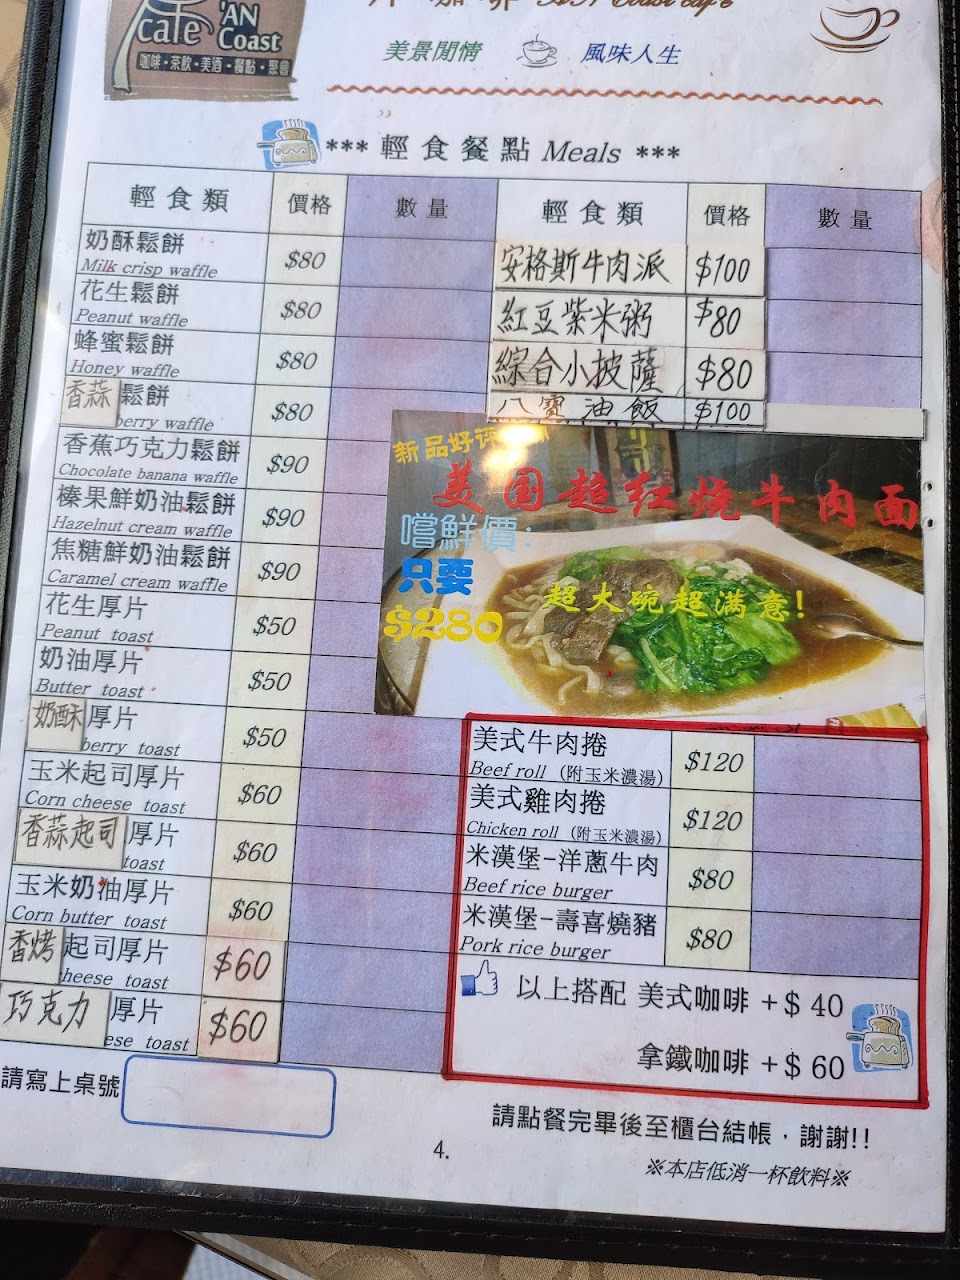 cafe 'AN
Coast
咖啡・茶飲・美酒・餐點・聚會
咖啡 AN Coast cafe
美景閒情 風味人生
*** 輕食餐點 Meals ***
輕食類 價格 數量
奶酥鬆餅 $80
Milk crisp waffle
花生鬆餅 $80
Peanut waffle
蜂蜜鬆餅 $80
Honey waffle
香蒜鬆餅 $80
berry waffle
香蕉巧克力鬆餅 $90
Chocolate banana waffle
榛果鮮奶油鬆餅 $90
Hazelnut cream waffle
焦糖鮮奶油鬆餅 $90
Caramel cream waffle
花生厚片 $50
Peanut toast
奶油厚片 $50
Butter toast
奶酥厚片 $50
berry toast
玉米起司厚片 $60
Corn cheese toast
香蒜起司厚片 $60
toast
玉米奶油厚片 $60
Corn butter toast
香烤起司厚片 $60
heese toast
巧克力厚片 $60
ese toast
輕食類 價格 數量
安格斯牛肉派 $100
紅豆紫米粥 $80
綜合小披薩 $80
八寶油飯 $100
新品好评
美国超红烧牛肉面
嚐鮮價:
只要
$280
超大碗超满意!
美式牛肉捲 $120
Beef roll (附玉米濃湯)
美式雞肉捲 $120
Chicken roll (附玉米濃湯)
米漢堡-洋蔥牛肉 $80
Beef rice burger
米漢堡-壽喜燒豬 $80
Pork rice burger
以上搭配 美式咖啡 +$ 40
拿鐵咖啡 +$ 60
請寫上桌號
請點餐完畢後至櫃台結帳，謝謝!!
4.
※本店低消一杯飲料※